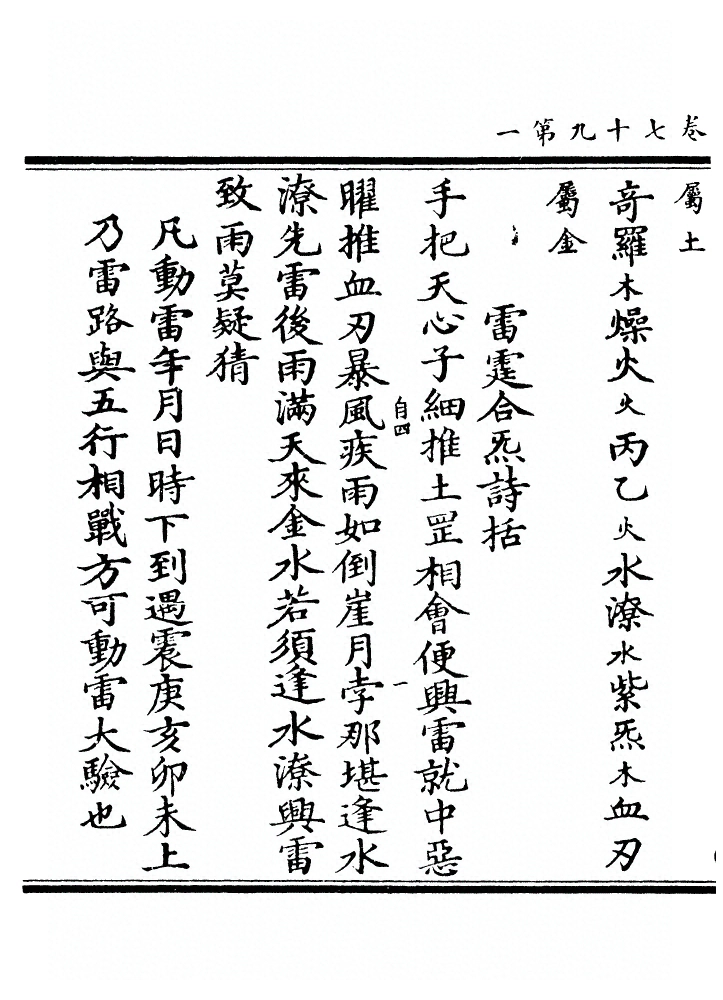 卷七十九第一
屬土
奇羅木燥火火丙乙火水潦水紫炁木血刃
屬金
雷霆合炁詩括
手把天心子細推土罡相會便興雷就中惡
自四一
曜推血刃暴風疾雨如倒崖月孛那堪逢水
潦先雷後雨滿天來金水若須逢水潦興雷
致雨莫疑猜
凡動雷年月日時下到遇震庚亥卯未上
乃雷路與五行相戰方可動雷大驗也